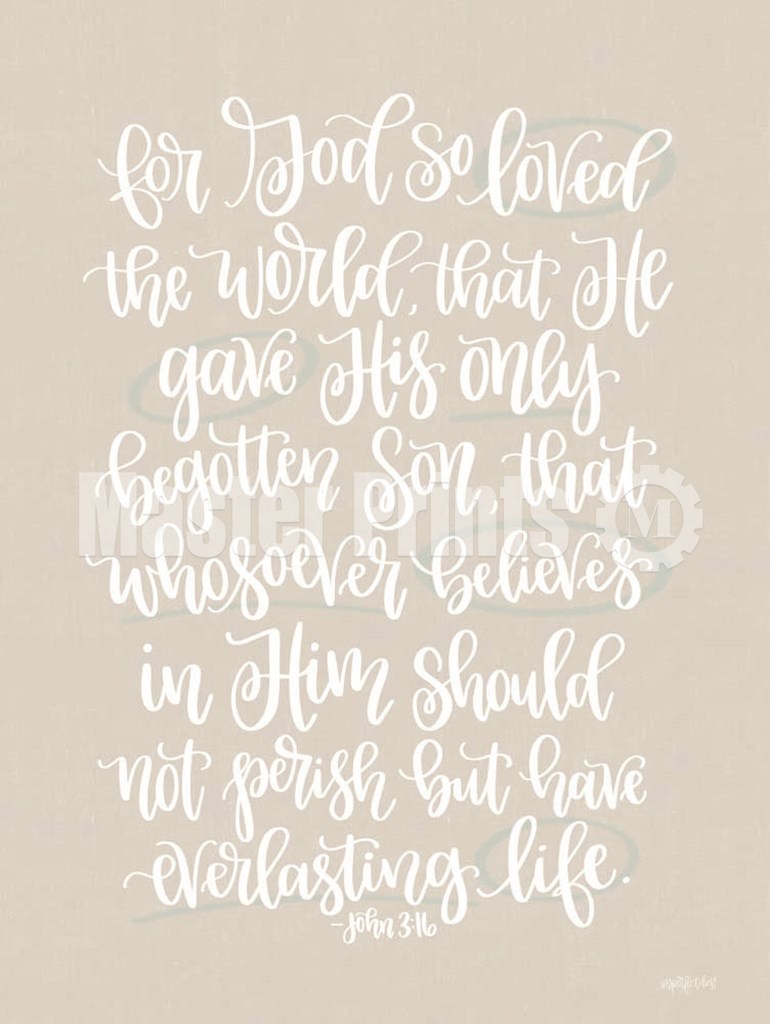 for God so loved
the world, that He
gave His only
begotten Son, that
Master Prints M
whosoever believes
in Him should
not perish but have
everlasting life.
-John 3:16